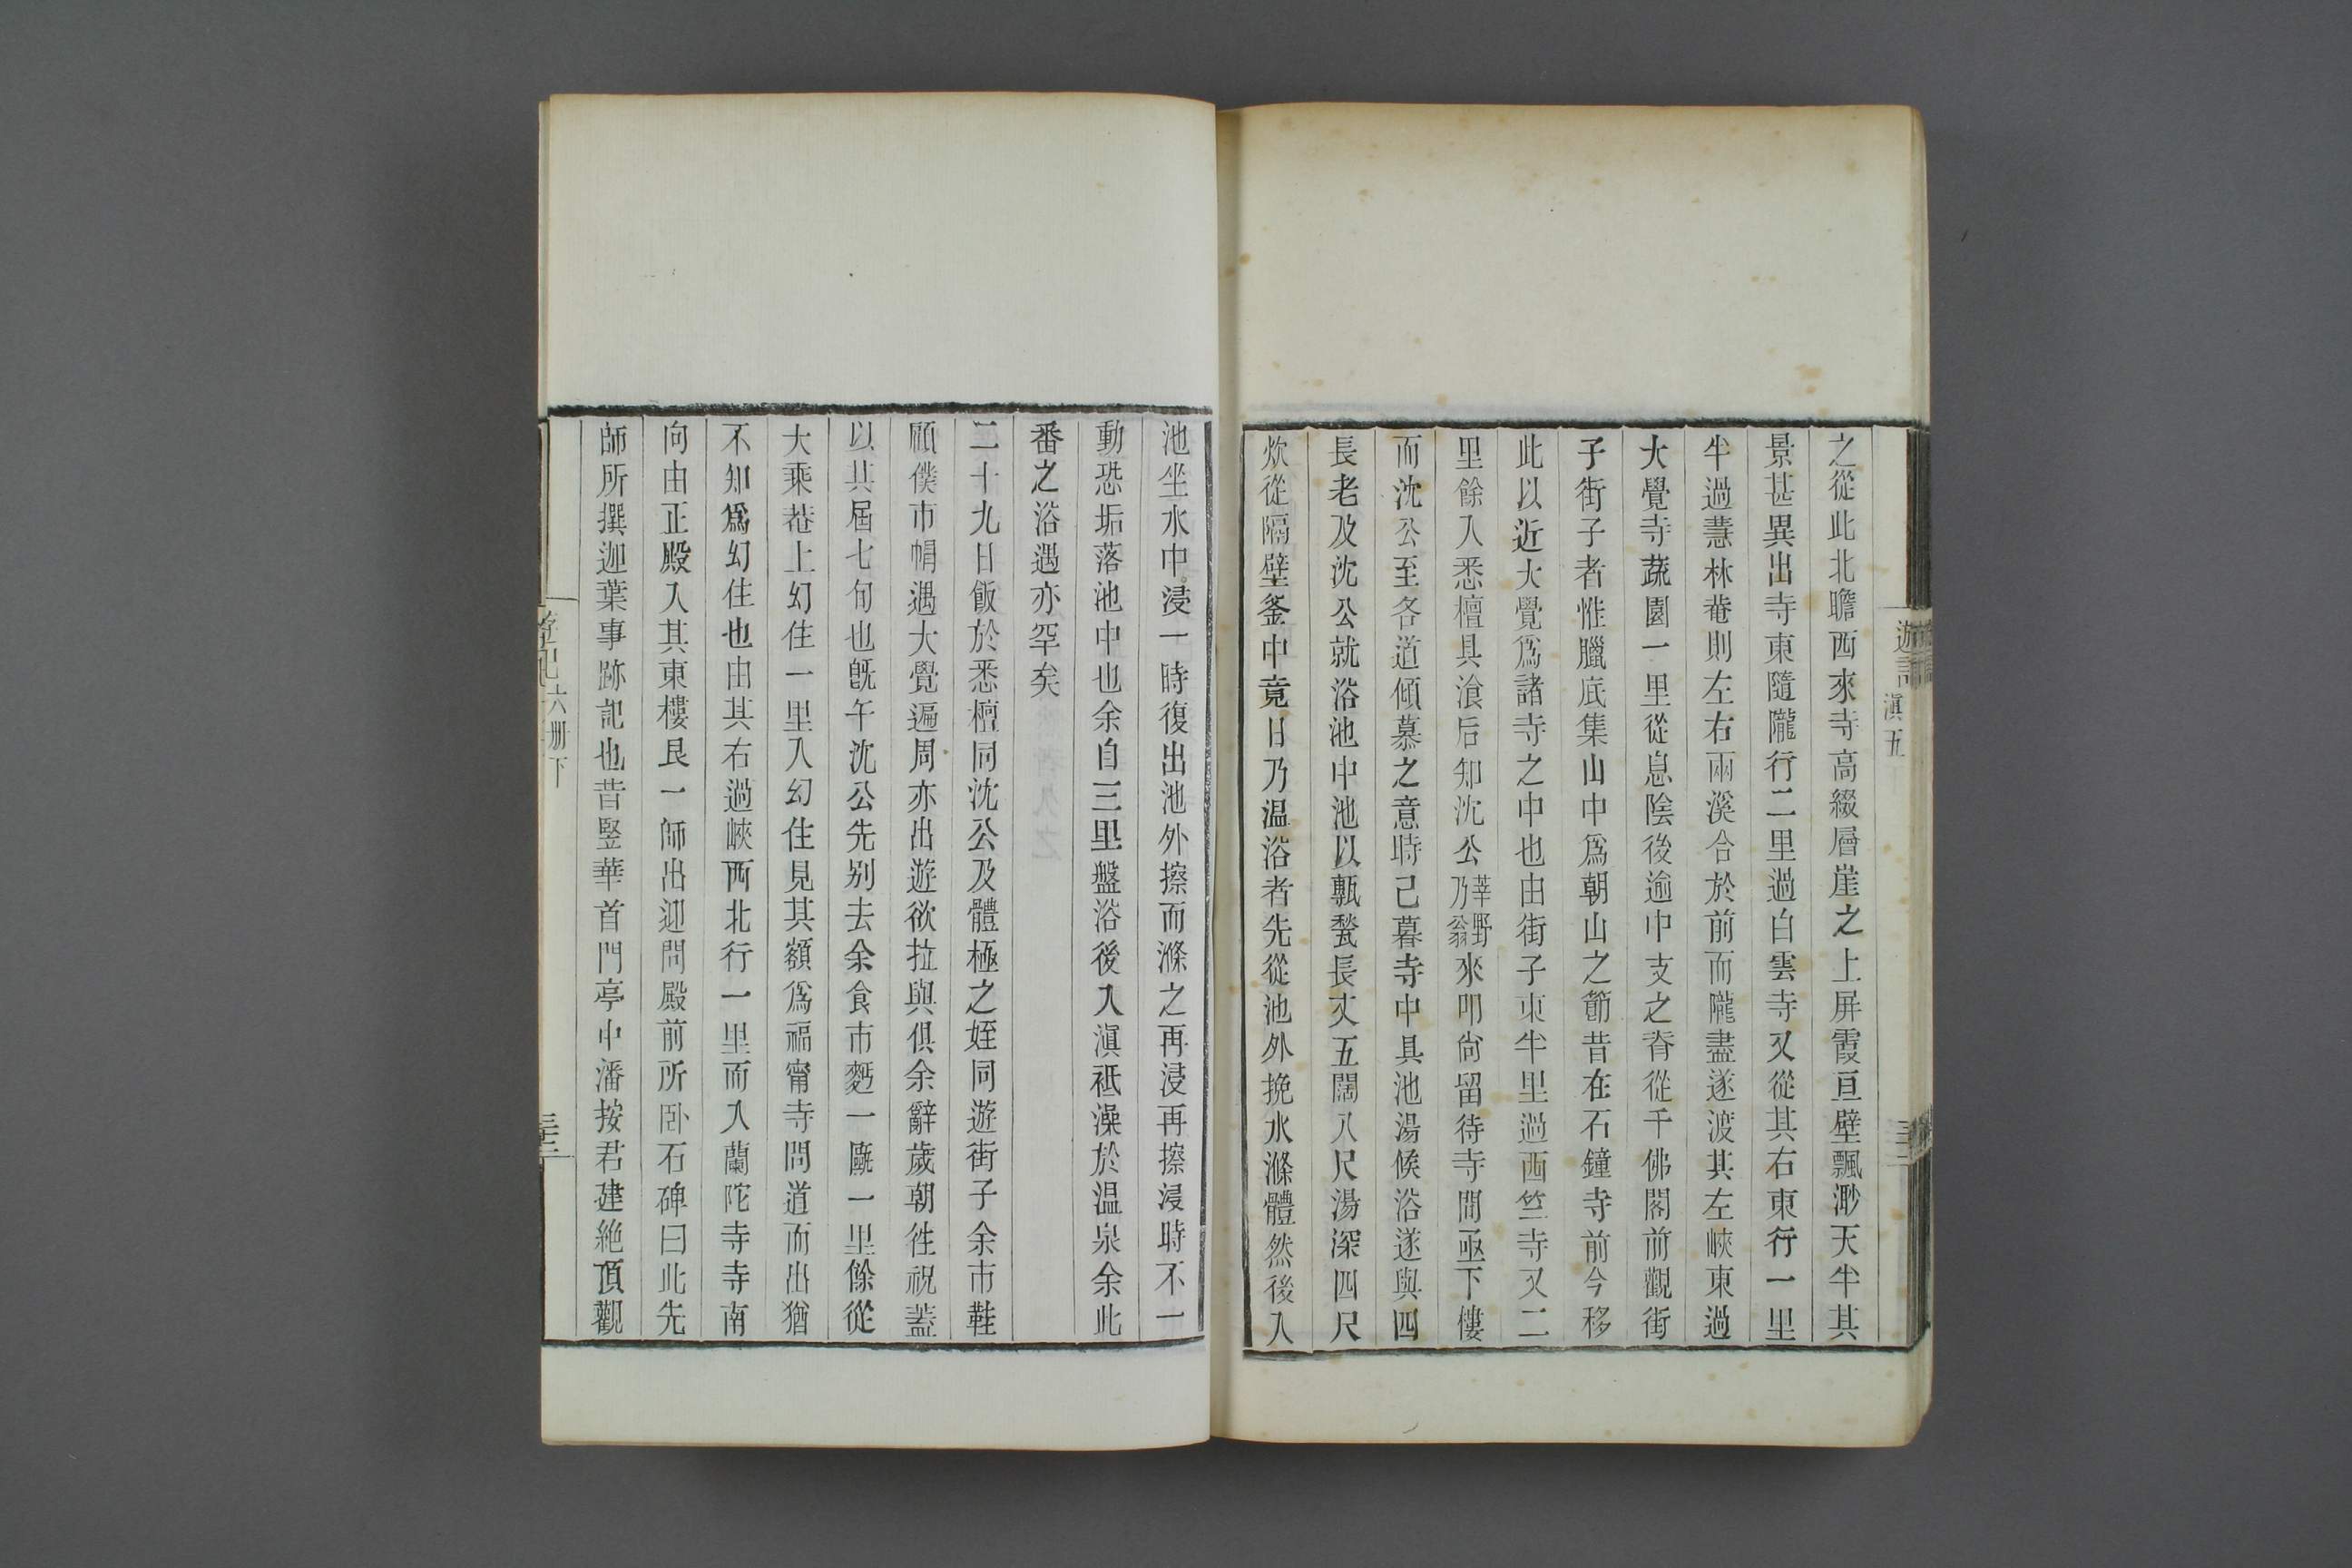 遊記
滇五
之從此北瞻西來寺高綴層崖之上屏霞亘壁飄渺天半其
景甚異出寺東隨隴行二里過白雲寺又從其右東行一里
半過慧林菴則左右兩溪合於前而隴盡遂渡其左峽東過
大覺寺蔬園一里從息陰後逾中支之脊從千佛閣前觀街
子街子者惟臘底集山中爲朝山之節昔在石鐘寺前今移
此以近大覺爲諸寺之中也由街子東半里過西竺寺又二
里餘入悉檀具飡后知沈公莘野乃翁來叩尙留待寺間亟下樓
而沈公至各道傾慕之意時已暮寺中具池湯候浴遂與四
長老及沈公就浴池中池以甎甃長丈五闊八尺湯深四尺
炊從隔壁釜中竟日乃温浴者先從池外挽水滌體然後入
池坐水中浸一時復出池外擦而滌之再浸再擦浸時不一
動恐垢落池中也余自三里盤浴後入滇祗澡於温泉余此
番之浴遇亦罕矣
二十九日飯於悉檀同沈公及體極之姪同遊街子余市鞋
顧僕市帽遇大覺遍周亦出遊欲拉與俱余辭歲朝徃祝蓋
以其屆七旬也旣午沈公先别去余食市麪一甌一里餘從
大乘菴上幻住一里入幻住見其額爲福甯寺問道而出猶
不知爲幻住也由其右過峽西北行一里而入蘭陀寺寺南
向由正殿入其東樓艮一師出迎問殿前所卧石碑曰此先
師所撰迦葉事跡記也昔竪華首門亭中潘按君建絶頂觀
六册下